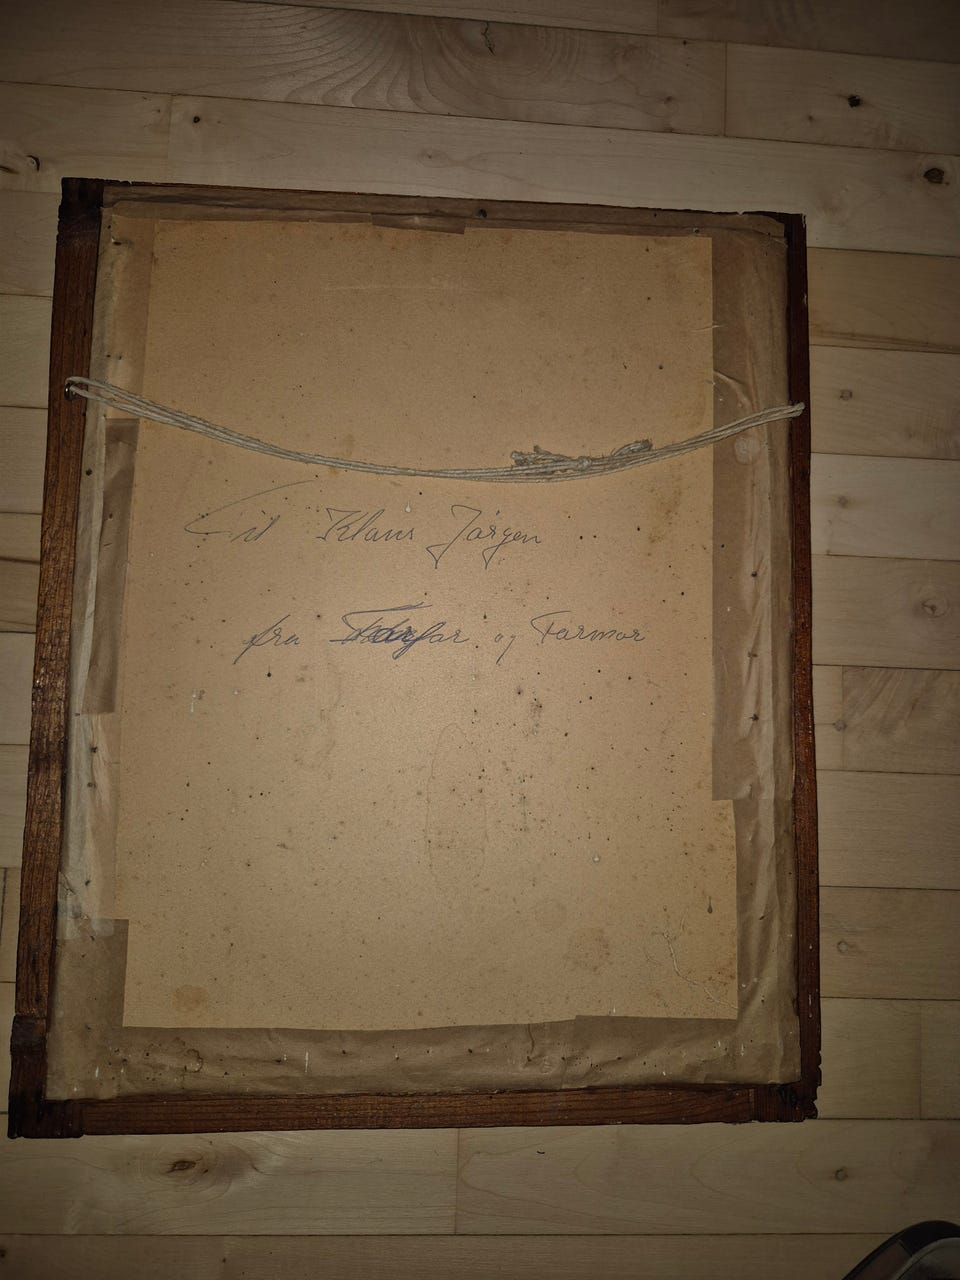 Til Klaus Jørgen
fra Farfar og Farmor